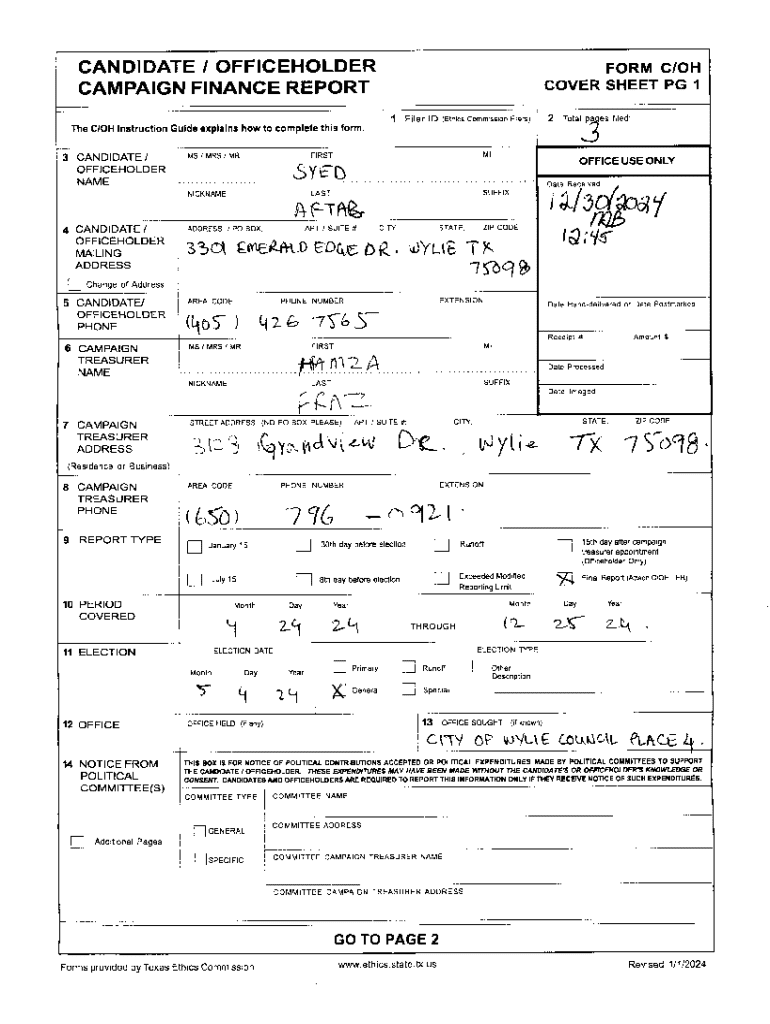 CANDIDATE / OFFICEHOLDER
CAMPAIGN FINANCE REPORT
FORM C/OH
COVER SHEET PG 1
The C/OH Instruction Guide explains how to complete this form.
1 Filer ID (Ethics Commission Filers)
2 Total pages filed:
3
3 CANDIDATE / OFFICEHOLDER NAME
MS / MRS / MR FIRST MI
SYED
NICKNAME LAST SUFFIX
AFTAB
OFFICE USE ONLY
Date Received
12/30/2024
12:45
4 CANDIDATE / OFFICEHOLDER MAILING ADDRESS
Change of Address
ADDRESS / PO BOX; APT / SUITE #; CITY; STATE; ZIP CODE
3301 EMERALD EDGE DR. WYLIE TX
75098
5 CANDIDATE/ OFFICEHOLDER PHONE
AREA CODE PHONE NUMBER EXTENSION
(405) 426 7565
Date Hand-delivered or Date Postmarked
Receipt # Amount $
Date Processed
Date Imaged
6 CAMPAIGN TREASURER NAME
MS / MRS / MR FIRST MI
HAMZA
NICKNAME LAST SUFFIX
7 CAMPAIGN TREASURER ADDRESS
(Residence or Business)
STREET ADDRESS (NO PO BOX PLEASE); APT / SUITE #; CITY; STATE; ZIP CODE
3123 Grandview DR. Wylie TX 75098.
8 CAMPAIGN TREASURER PHONE
AREA CODE PHONE NUMBER EXTENSION
(650) 796 -0921.
9 REPORT TYPE
January 15 30th day before election Runoff 15th day after campaign treasurer appointment (Officeholder Only)
July 15 8th day before election Exceeded Modified Reporting Limit X Final Report (Attach C/OH - FR)
10 PERIOD COVERED
Month Day Year Month Day Year
4 24 24 THROUGH 12 25 24.
11 ELECTION
ELECTION DATE ELECTION TYPE
Month Day Year
5 4 24
Primary Runoff Other Description
X General Special
12 OFFICE
OFFICE HELD (if any)
13 OFFICE SOUGHT (if known)
CITY OF WYLIE COUNCIL PLACE 4.
14 NOTICE FROM POLITICAL COMMITTEE(S)
THIS BOX IS FOR NOTICE OF POLITICAL CONTRIBUTIONS ACCEPTED OR POLITICAL EXPENDITURES MADE BY POLITICAL COMMITTEES TO SUPPORT
THE CANDIDATE / OFFICEHOLDER. THESE EXPENDITURES MAY HAVE BEEN MADE WITHOUT THE CANDIDATE'S OR OFFICEHOLDER'S KNOWLEDGE OR
CONSENT. CANDIDATES AND OFFICEHOLDERS ARE REQUIRED TO REPORT THIS INFORMATION ONLY IF THEY RECEIVE NOTICE OF SUCH EXPENDITURES.
COMMITTEE TYPE COMMITTEE NAME
GENERAL
COMMITTEE ADDRESS
Additional Pages
SPECIFIC
COMMITTEE CAMPAIGN TREASURER NAME
COMMITTEE CAMPAIGN TREASURER ADDRESS
GO TO PAGE 2
Forms provided by Texas Ethics Commission
www.ethics.state.tx.us
Revised 1/1/2024